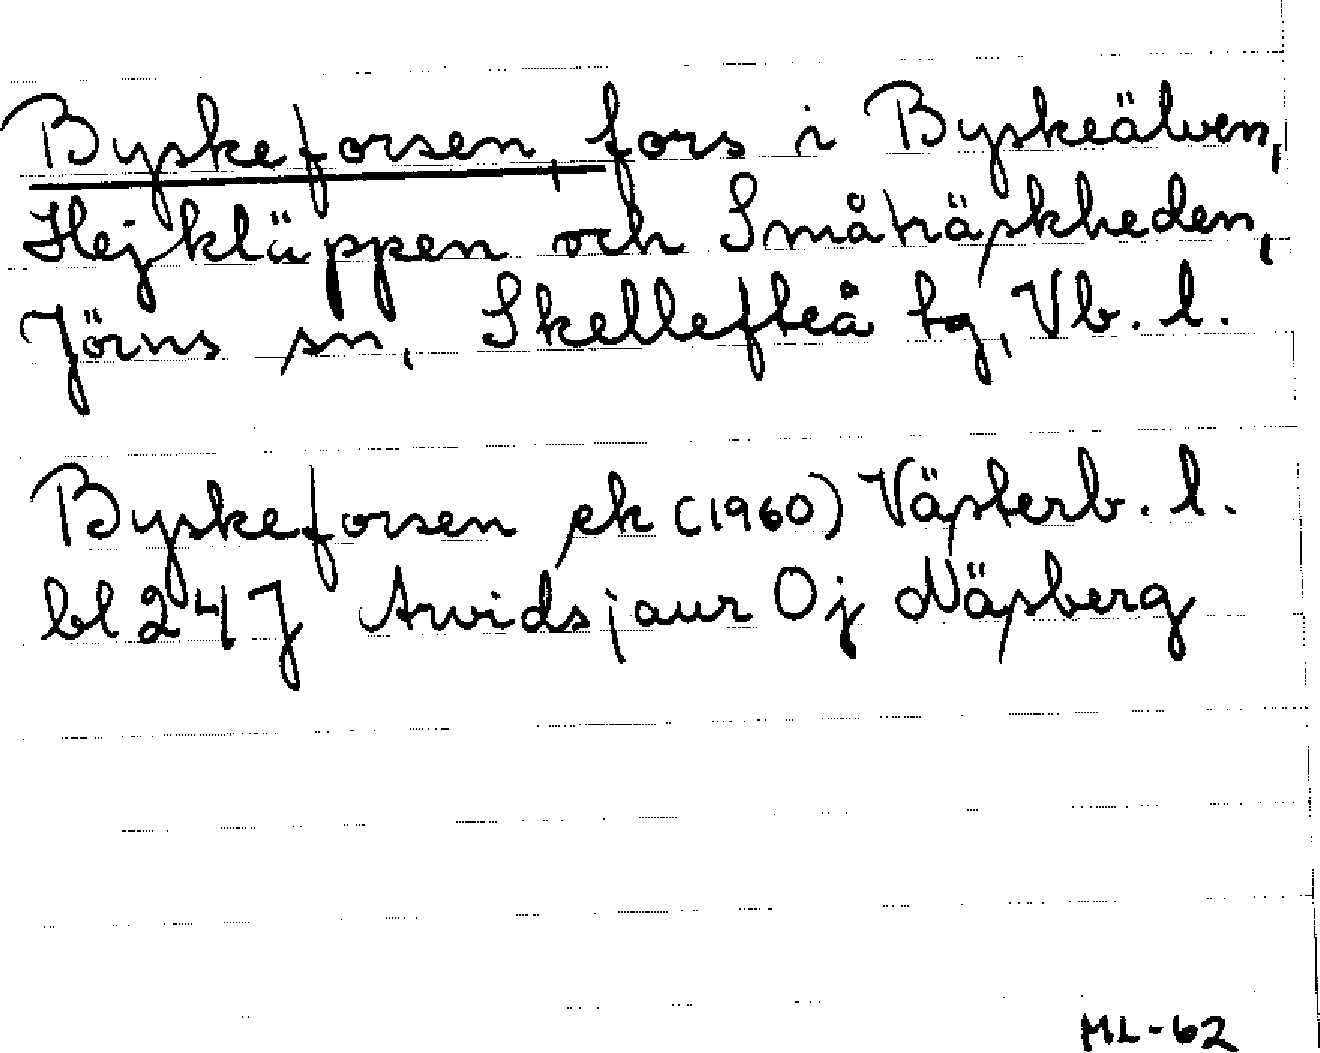 Byskeforsen, fors i Byskeälven,
Hejkläppen och Småträskheden,
Jörns sn, Skellefteå tg, Vb. l.
Byskeforsen ek (1960) Västerb. l.
bl 247 Arvidsjaur Oj Näsberg
ML-62